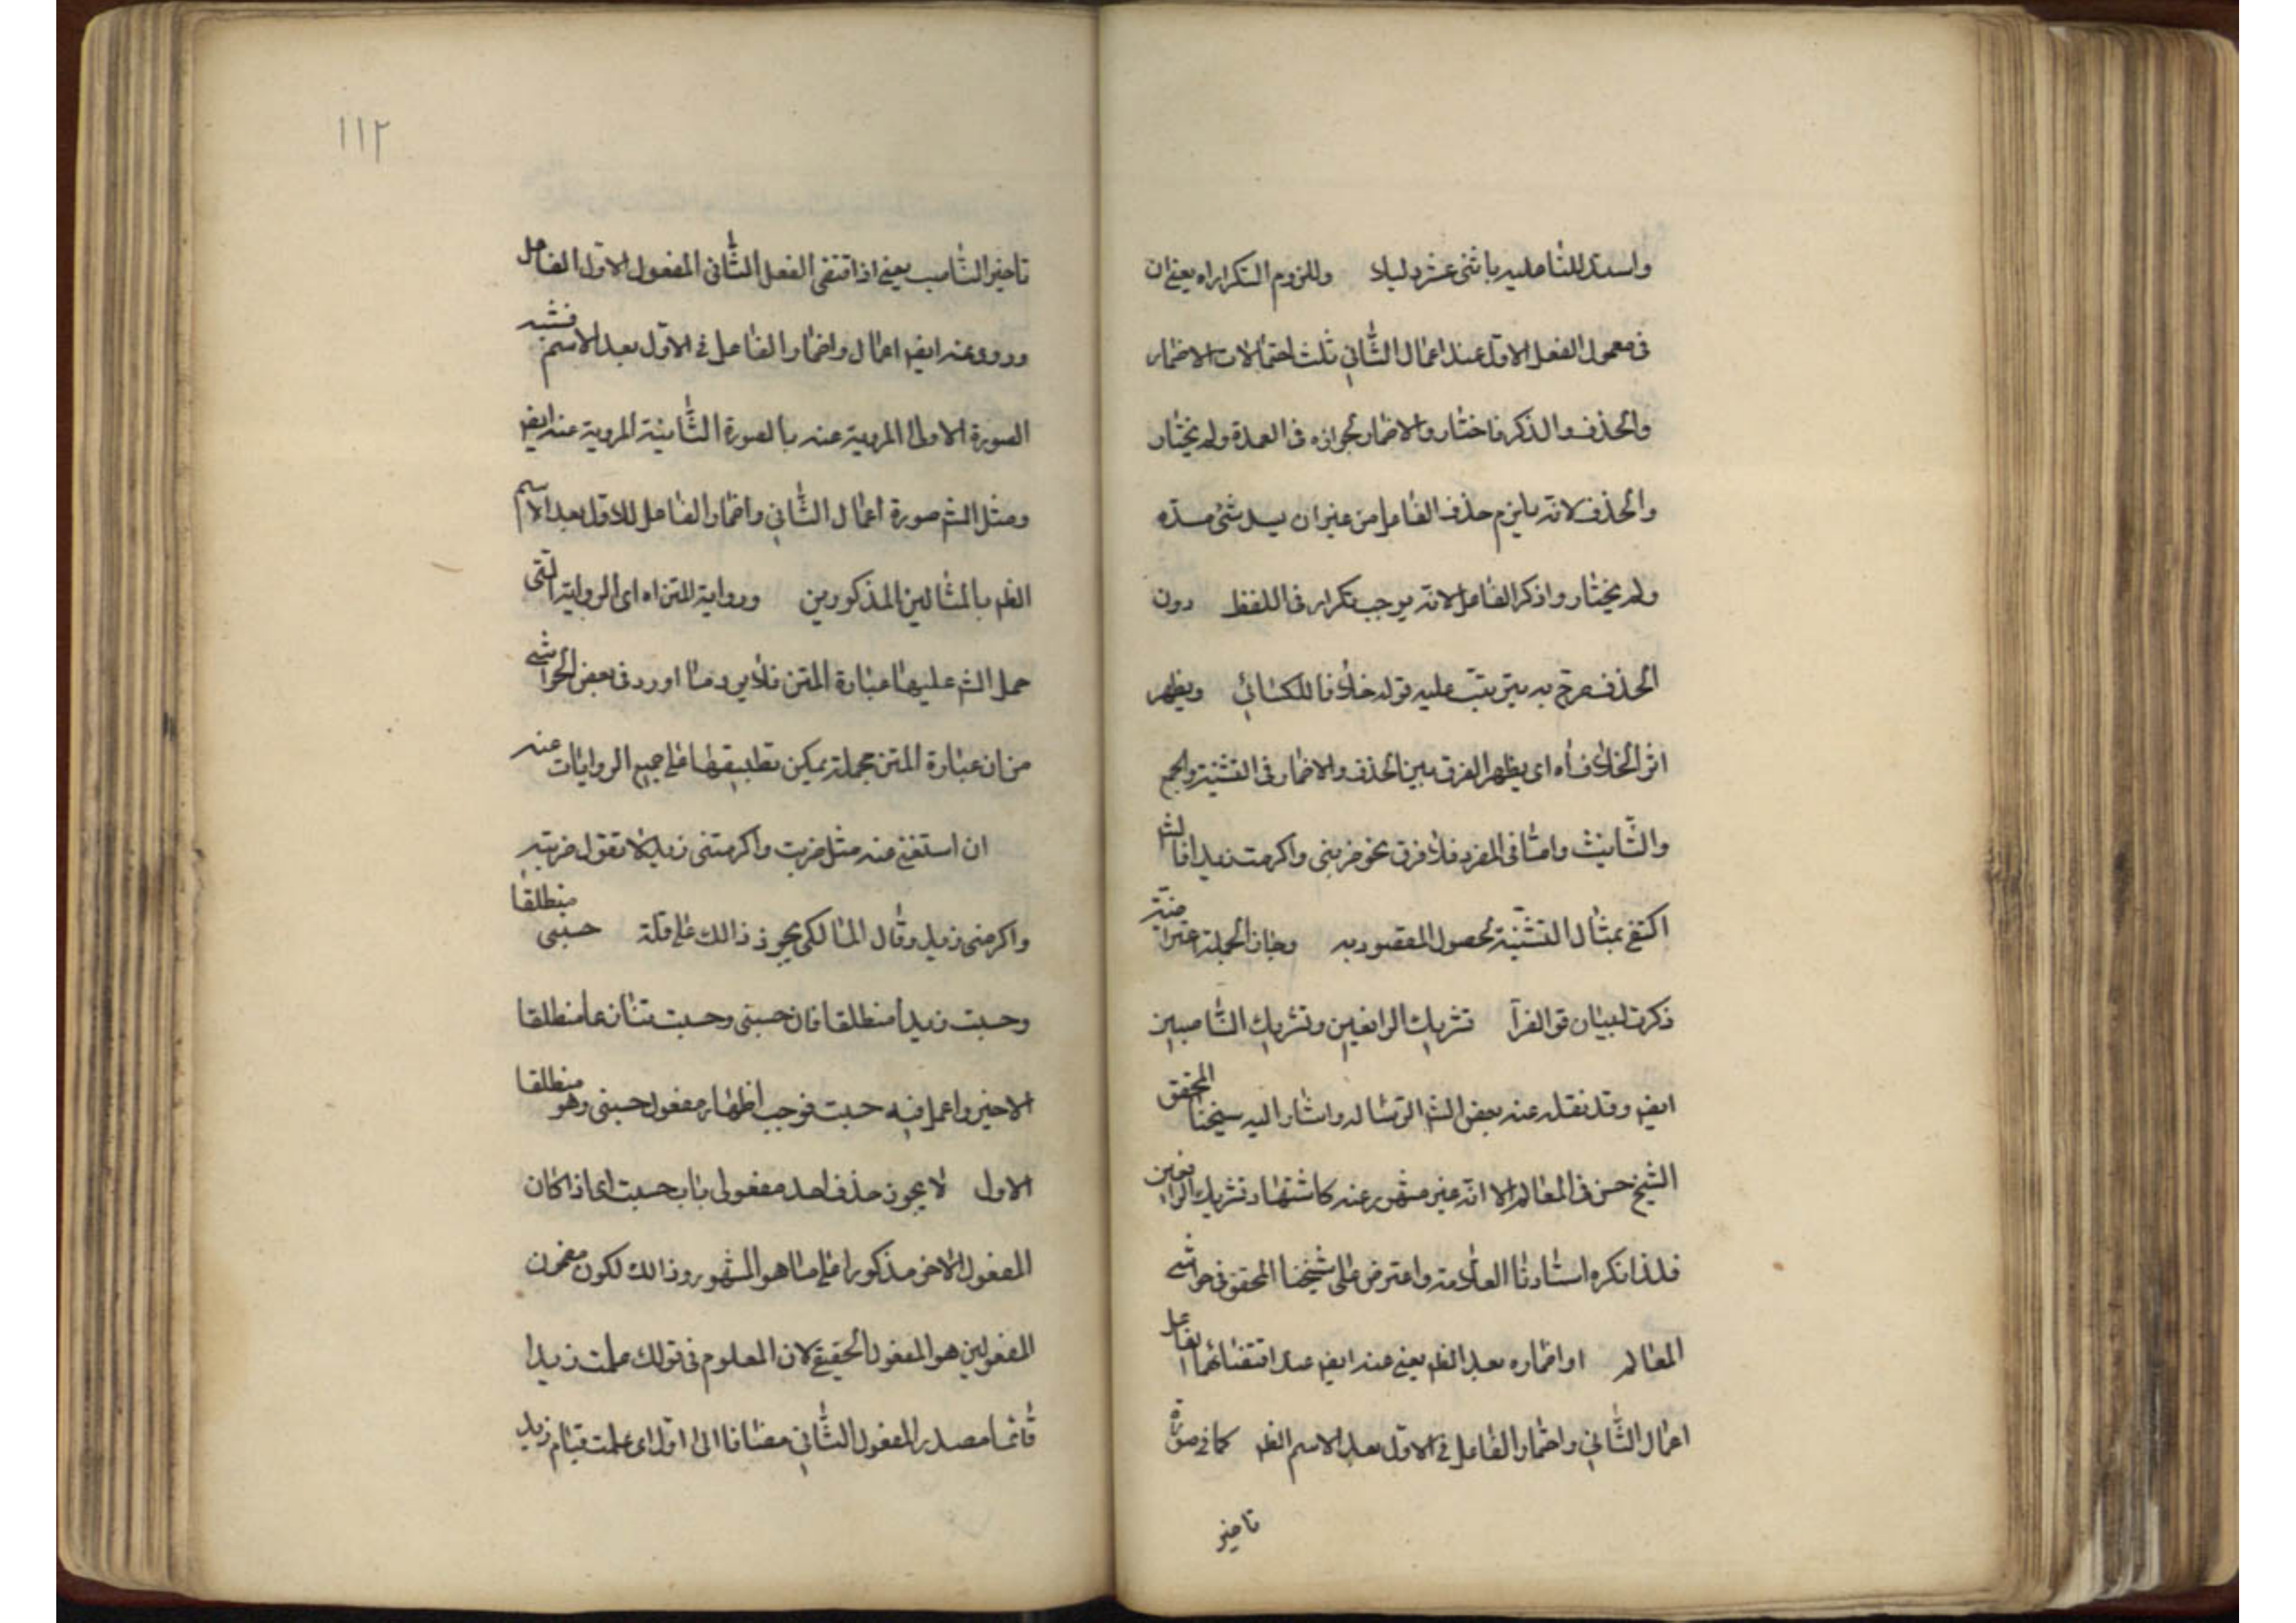 واستدللنا عليه باثنى عشر دليلا وللزوم التكرار اه يعنى ان
فى معمول الفعل الاول عند اعمال الثانى ثلث احتمالات الاضمار
والحذف والذكر فاختار والاضمار لجوازه فى العمدة ولم يختار
والحذف لانه يلزم حذف الفاعل من غير ان يسد شئ مسده
ولم يختار واذكر الفاعل لانه يوجب تكرار فى اللفظ دون
الحذف صرح به ليترتب عليه قوله خلافا للكسائى ويظهر
اثر الخلاف اه اى يظهر الفرق بين الحذف والاضمار فى التثنية والجمع
والتانيث واما فى المفرد فلا فرق نحو ضربنى واكرمت زيدا فالش
اكتفى بمثال التثنية لحصول المقصود به وهذه الجملة معترضة
ذكرت لبيان قو الفرآ تشريك الرافعين وتشريك الناصبين
ايض وقد نقله عنه بعض الش الرسالة واشار اليه شيخنا المحقق
الشيخ حسن فى المعالم الا انه غير مشهور عنه كاشتهار تشريك الرافعين
فلذا نكره استادنا العلامة واعترض على شيخنا المحقق فى حواشى
المعالم او اضماره بعد الظ يعنى عنه ايض عند اقتضائهما الفاعل
اعمال الثانى واضمار الفاعل فى الاول بعد الاسم الظ كما فى صورة
تاخير
١١٢
تاخير الناصب يعنى اذا اقتضى الفعل الثانى المفعول الاول الفاعل
وروو عنه ايض اعمال واضمار الفاعل فى الاول بعد الاسم فشبه
الصورة الاولى المروية عنه بالصورة الثانية المروية عنه ايض
ومثل الش صورة اعمال الثانى واضمار الفاعل للاول بعد الاسم
الظ بالمثالين المذكورين ورواية المتن اه اى الرواية التى
حمل الش عليها عبارة المتن فلا يرد ما اورد فى بعض الحواشى
من ان عبارة المتن مجملة يمكن تطبيقها على جميع الروايات عنه
ان استغنى عنه مثل ضربت واكرمتنى زيد لا تقول ضربته
واكرمنى زيد وقال المالكى يجوز ذالك على قلة حسبنى منطلقا
وحسبت زيدا منطلقا فان حسبنى وحسبت تنازعا منطلقا
الاخير واعمل فيه حسبت فوجب اظهار مفعول حسبنى وهو منطلقا
الاول لا يجوز حذف احد مفعولى باب حسبت اى اذا كان
المفعول الاخر مذكورا على ما هو المشهور وذالك لكون مضمون
المفعولين هو المفعول الحقيقى لان المعلوم فى قولك علمت زيدا
قائما مصدر المفعول الثانى مضافا الى اول اى علمت قيام زيد